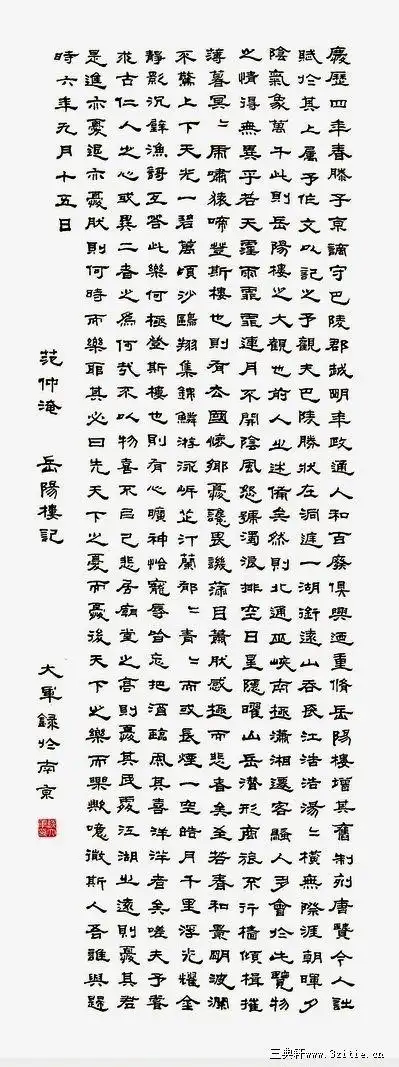 慶歷四年春滕子京謫守巴陵郡越明年政通人和百廢俱興迺重脩岳陽樓增其舊制刻唐賢今人詩
賦於其上屬予作文以記之予觀夫巴陵勝狀在洞庭一湖銜遠山吞長江浩浩湯〻橫無際涯朝暉夕
陰氣象萬千此則岳陽樓之大觀也前人之述備矣然則北通巫峽南極瀟湘遷客騷人多會於此覽物
之情得無異乎若夫霪雨霏霏連月不開陰風怒號濁浪排空日星隱曜山岳潛形商旅不行檣傾楫摧
薄暮冥〻虎嘯猿啼登斯樓也則有去國懷鄉憂讒畏譏滿目蕭然感極而悲者矣至若春和景明波瀾
不驚上下天光一碧萬頃沙鷗翔集錦鱗游泳岸芷汀蘭郁〻青〻而或長煙一空皓月千里浮光耀金
靜影沉璧漁謌互答此樂何極登斯樓也則有心曠神怡寵辱皆忘把酒臨風其喜洋洋者矣嗟夫予嘗
求古仁人之心或異二者之為何哉不以物喜不以己悲居廟堂之高則憂其民處江湖之遠則憂其君
是進亦憂退亦憂然則何時而樂耶其必曰先天下之憂而憂後天下之樂而樂歟噫微斯人吾誰與歸
時六年九月十五日
范仲淹 岳陽樓記 大軍錄於南京
三典轩www.3zitie.cn